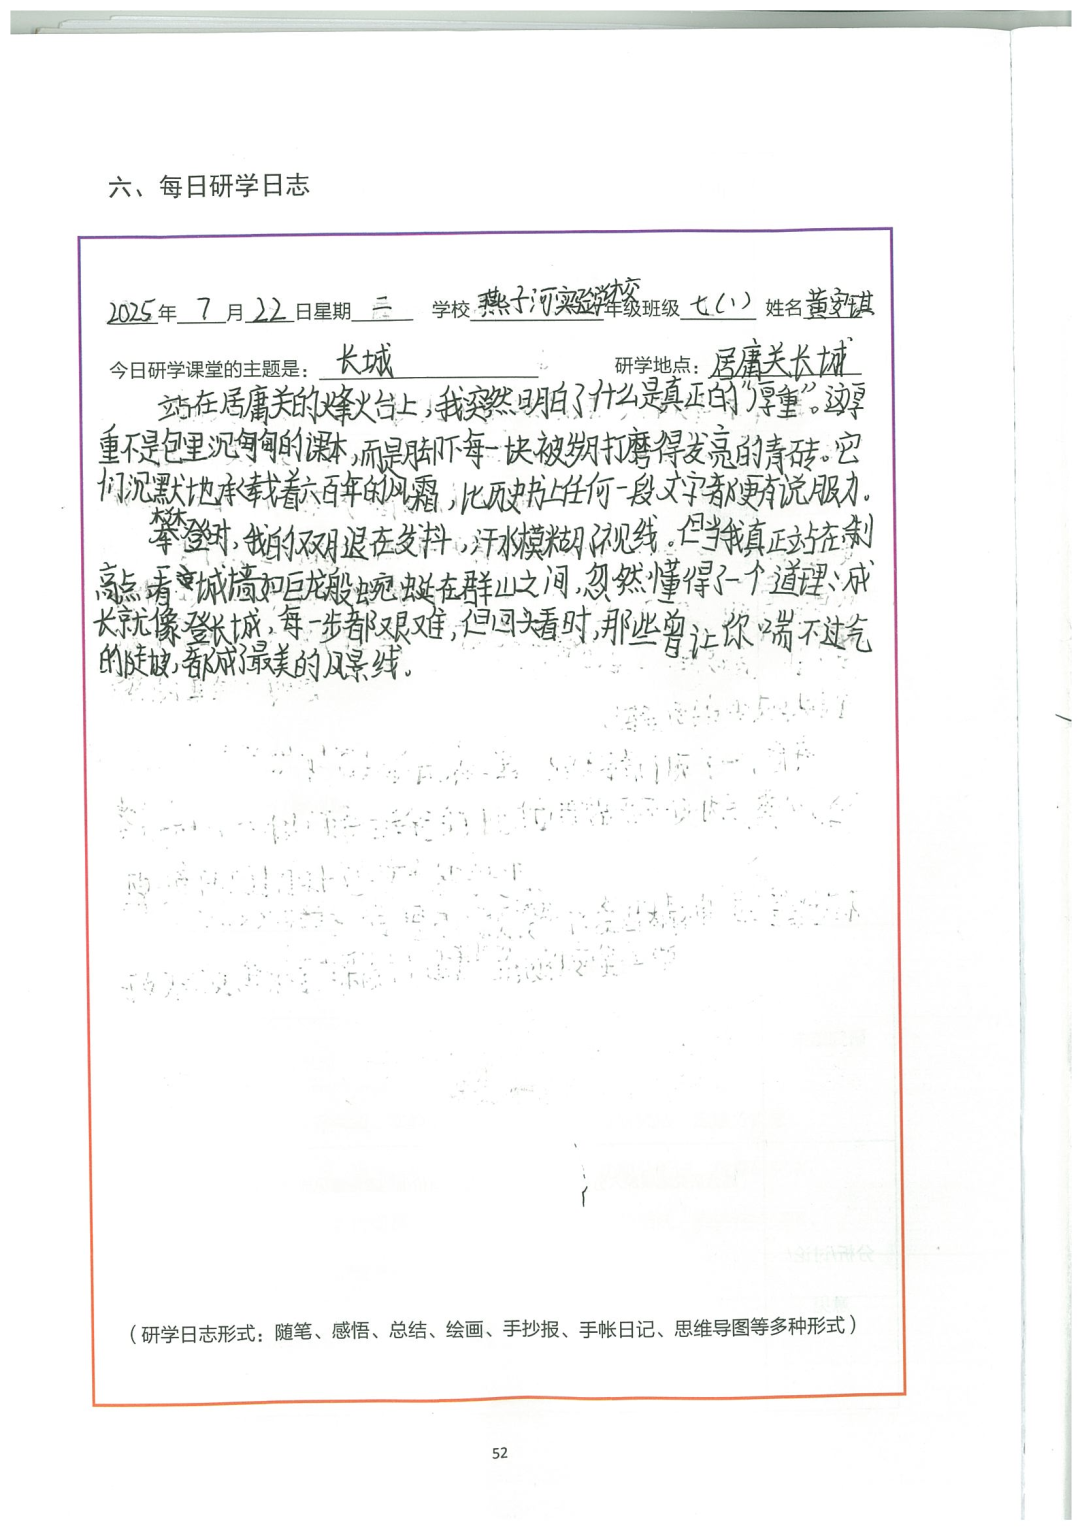 六、每日研学日志
2025年 7 月 22 日星期 二 学校 燕子河实验学校 年级班级 七(1) 姓名 黄安琪
今日研学课堂的主题是: 长城 研学地点: 居庸关长城
站在居庸关的烽火台上,我突然明白了什么是真正的“厚重”。这厚
重不是包里沉甸甸的课本,而是脚下每一块被岁月打磨得发亮的青砖。它
们沉默地承载着六百年的风霜,比历史书上任何一段文字都更有说服力。
攀登时,我的双腿在发抖,汗水模糊了视线。但当我真正站在制
高点看 城墙如巨龙般蜿蜒在群山之间,忽然懂得了一个道理:成
长就像登长城,每一步都艰难,但回头看时,那些曾让你喘不过气
的陡坡,都成了最美的风景线。
(研学日志形式:随笔、感悟、总结、绘画、手抄报、手帐日记、思维导图等多种形式)
52